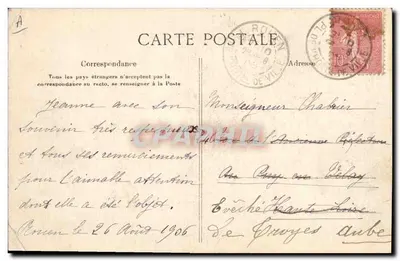 A
CARTE POSTALE
ROUEN
Correspondance
Tous les pays étrangers n'acceptent pas la
correspondance au recto, se renseigner à la Poste
Jeanne avec son
souvenir très respectueux
et tous ses remerciements
pour l'aimable attention
dont elle a été l'objet.
Rouen le 26 Août 1906
CPARAMA
Monseigneur
de l'Ancienne Préfecture
Au Puy en Velay
Évêché Haute Loire
de Troyes Aube